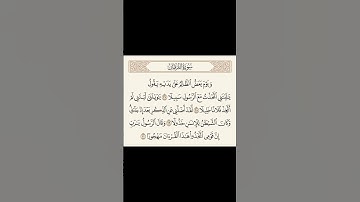 سُورَةُ الفُرْقَانِ
وَيَوْمَ يَعَضُّ الظَّالِمُ عَلَىٰ يَدَيْهِ يَقُولُ
يَٰلَيْتَنِي ٱتَّخَذْتُ مَعَ ٱلرَّسُولِ سَبِيلًا ۝ يَٰوَيْلَتَىٰ لَيْتَنِي لَمْ
أَتَّخِذْ فُلَانًا خَلِيلًا ۝ لَّقَدْ أَضَلَّنِي عَنِ ٱلذِّكْرِ بَعْدَ إِذْ جَآءَنِي
وَكَانَ ٱلشَّيْطَٰنُ لِلْإِنسَٰنِ خَذُولًا ۝ وَقَالَ ٱلرَّسُولُ يَٰرَبِّ
إِنَّ قَوْمِي ٱتَّخَذُوا۟ هَٰذَا ٱلْقُرْءَانَ مَهْجُورًا ۝